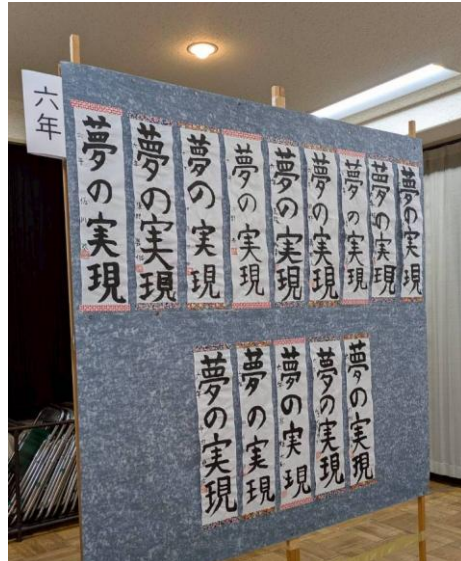 六年
夢の実現
夢の実現
夢の実現
夢の実現
夢の実現
夢の実現
夢の実現
夢の実現
夢の実現
夢の実現
夢の実現
夢の実現
夢の実現
夢の実現